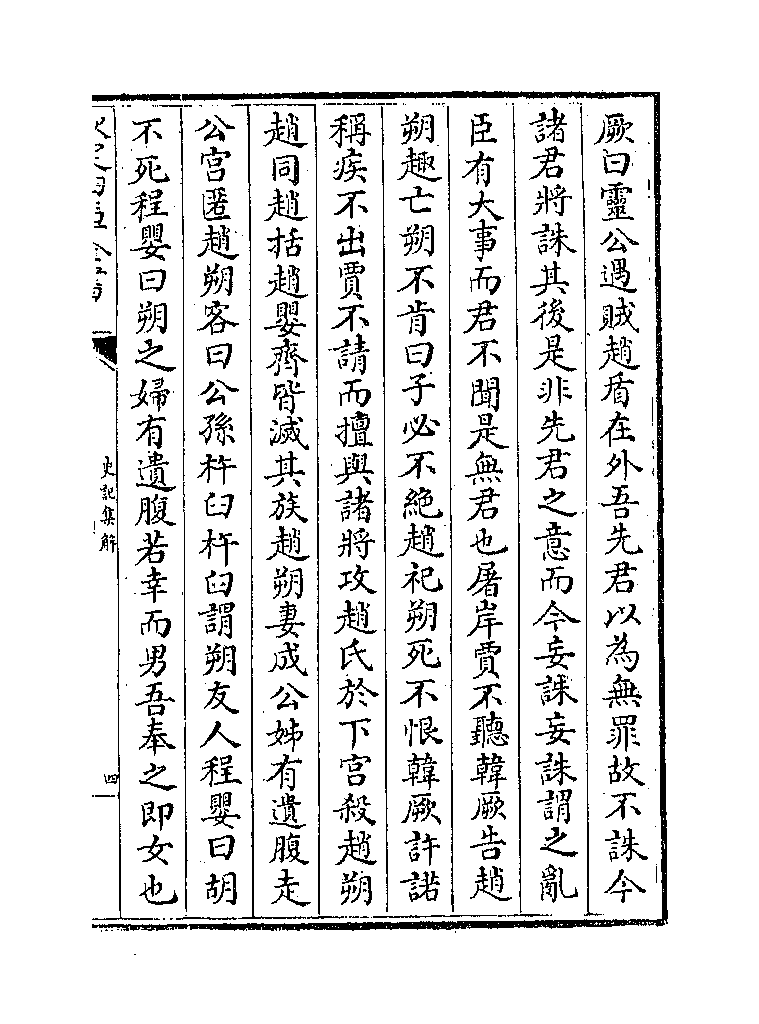 厥曰靈公遇賊趙盾在外吾先君以為無罪故不誅今
諸君將誅其後是非先君之意而今妄誅妄誅謂之亂
臣有大事而君不聞是無君也屠岸賈不聽韓厥告趙
朔趣亡朔不肯曰子必不絶趙祀朔死不恨韓厥許諾
稱疾不出賈不請而擅與諸將攻趙氏於下宮殺趙朔
趙同趙括趙嬰齊皆滅其族趙朔妻成公姊有遺腹走
公宮匿趙朔客曰公孫杵臼杵臼謂朔友人程嬰曰胡
不死程嬰曰朔之婦有遺腹若幸而男吾奉之即女也
史記集解
四